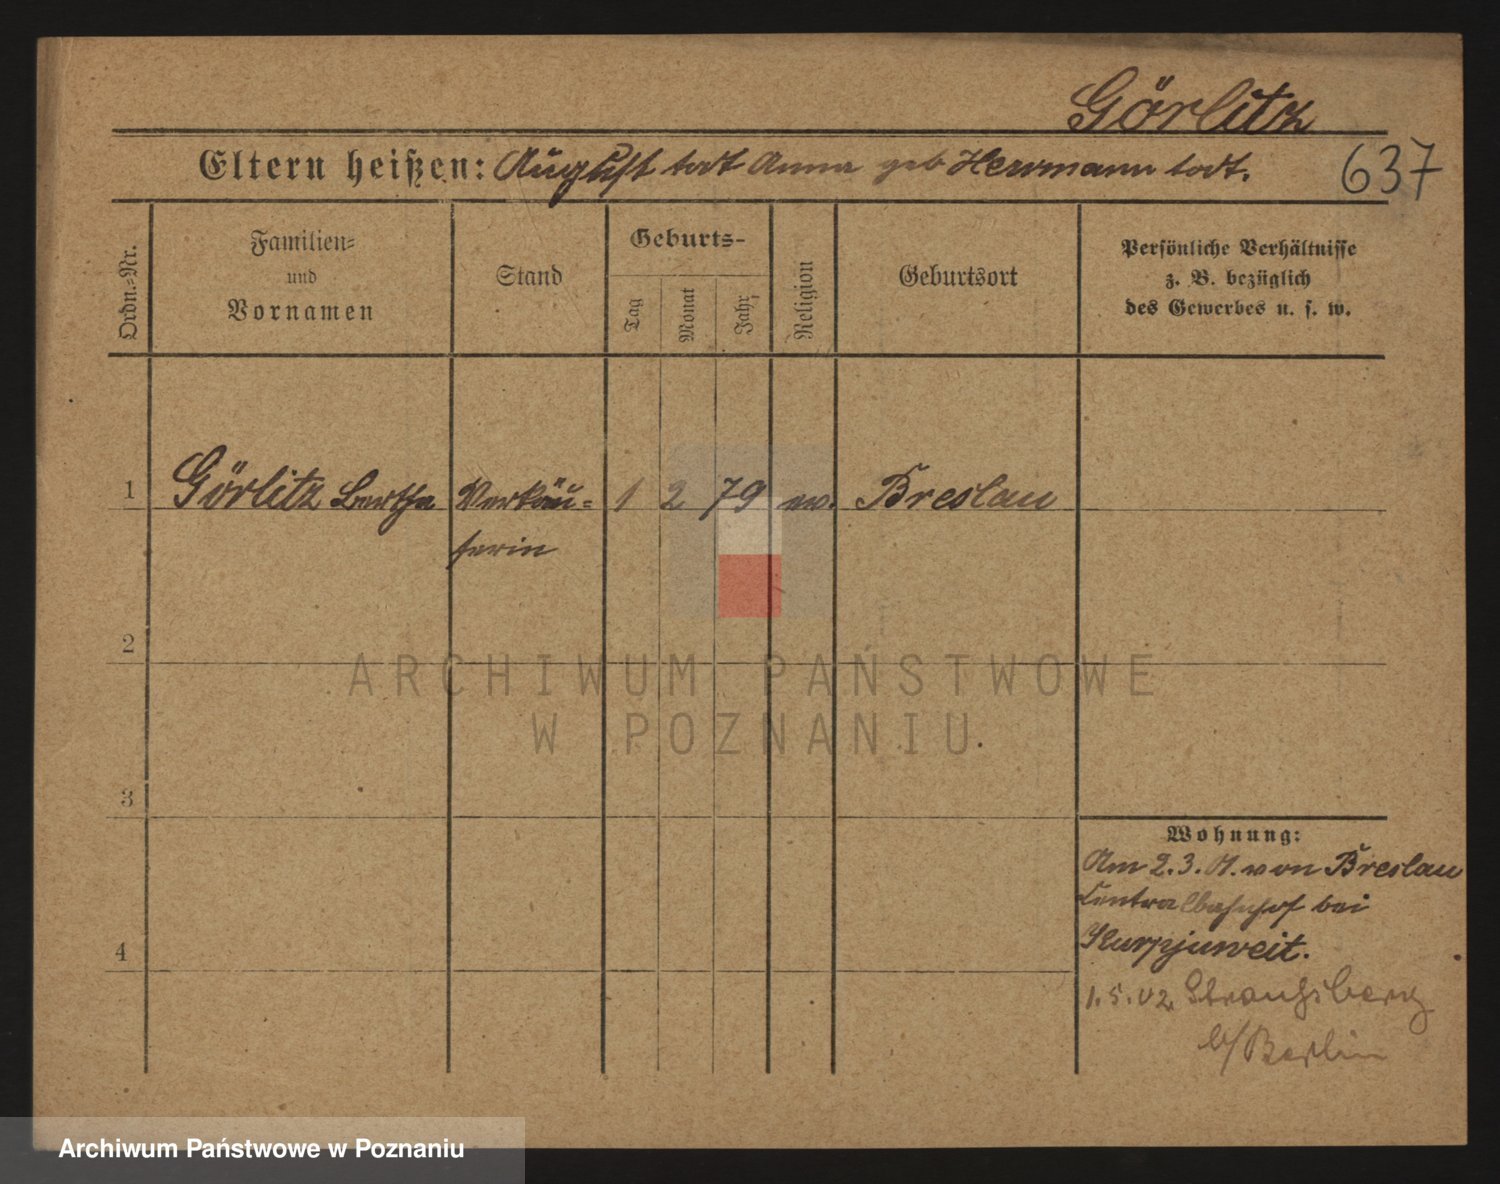 Görlitz
Eltern heißen: August todt Anna geb Herrmann todt.
637
Ordn.-Nr.
Familien-
und
Vornamen
Stand
Geburts-
Tag
Monat
Jahr
Religion
Geburtsort
Persönliche Verhältnisse
z. B. bezüglich
des Gewerbes u. s. w.
1 Görlitz Bertha Verkäu- 1 2 79 ev. Breslau
ferin
2
3
4
Wohnung:
Am 2.3. 01. von Breslau
Centralbahnhof bei
Kurpjuweit.
1.5.02 Straußberg
b/Berlin
ARCHIWUM PAŃSTWOWE
W POZNANIU
Archiwum Państwowe w Poznaniu